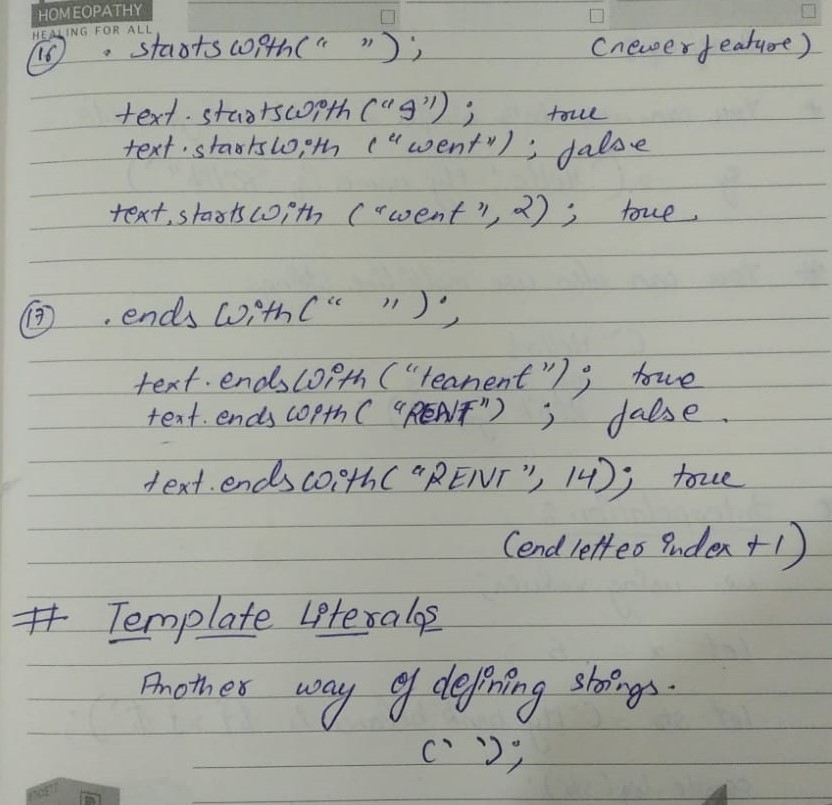 HOMEOPATHY
HEALING FOR ALL
(16) . startswith(" "); (newer feature)
text.startswith("g"); true
text.startswith ("went"); false
text.startswith ("went", 2); true.
(17) .ends with(" ");
text.endswith("teanent"); true
text.ends with("RENT"); false.
text.endswith("RENT", 14); true
(end letter index +1)
# Template Literals
Another way of defining strings.
(` `);